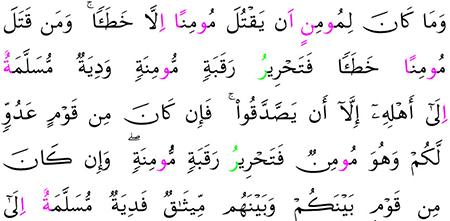 وَمَا كَانَ لِمُومِنٍ اَن يَقْتُلَ مُومِنًا اِلَّا خَطَـًٔا ۚ وَمَن قَتَلَ
مُومِنًا خَطَـًٔا فَتَحْرِيرُ رَقَبَةٍ مُّومِنَةٍ وَدِيَةٌ مُّسَلَّمَةٌ
اِلَىٰٓ أَهْلِهِۦٓ إِلَّآ أَن يَصَّدَّقُوا۟ ۚ فَإِن كَانَ مِن قَوْمٍ عَدُوٍّ
لَّكُمْ وَهُوَ مُومِنٌ فَتَحْرِيرُ رَقَبَةٍ مُّومِنَةٍ ۖ وَإِن كَانَ
مِن قَوْمٍ بَيْنَكُمْ وَبَيْنَهُم مِّيثَٰقٌ فَدِيَةٌ مُّسَلَّمَةٌ اِلَىٰٓ